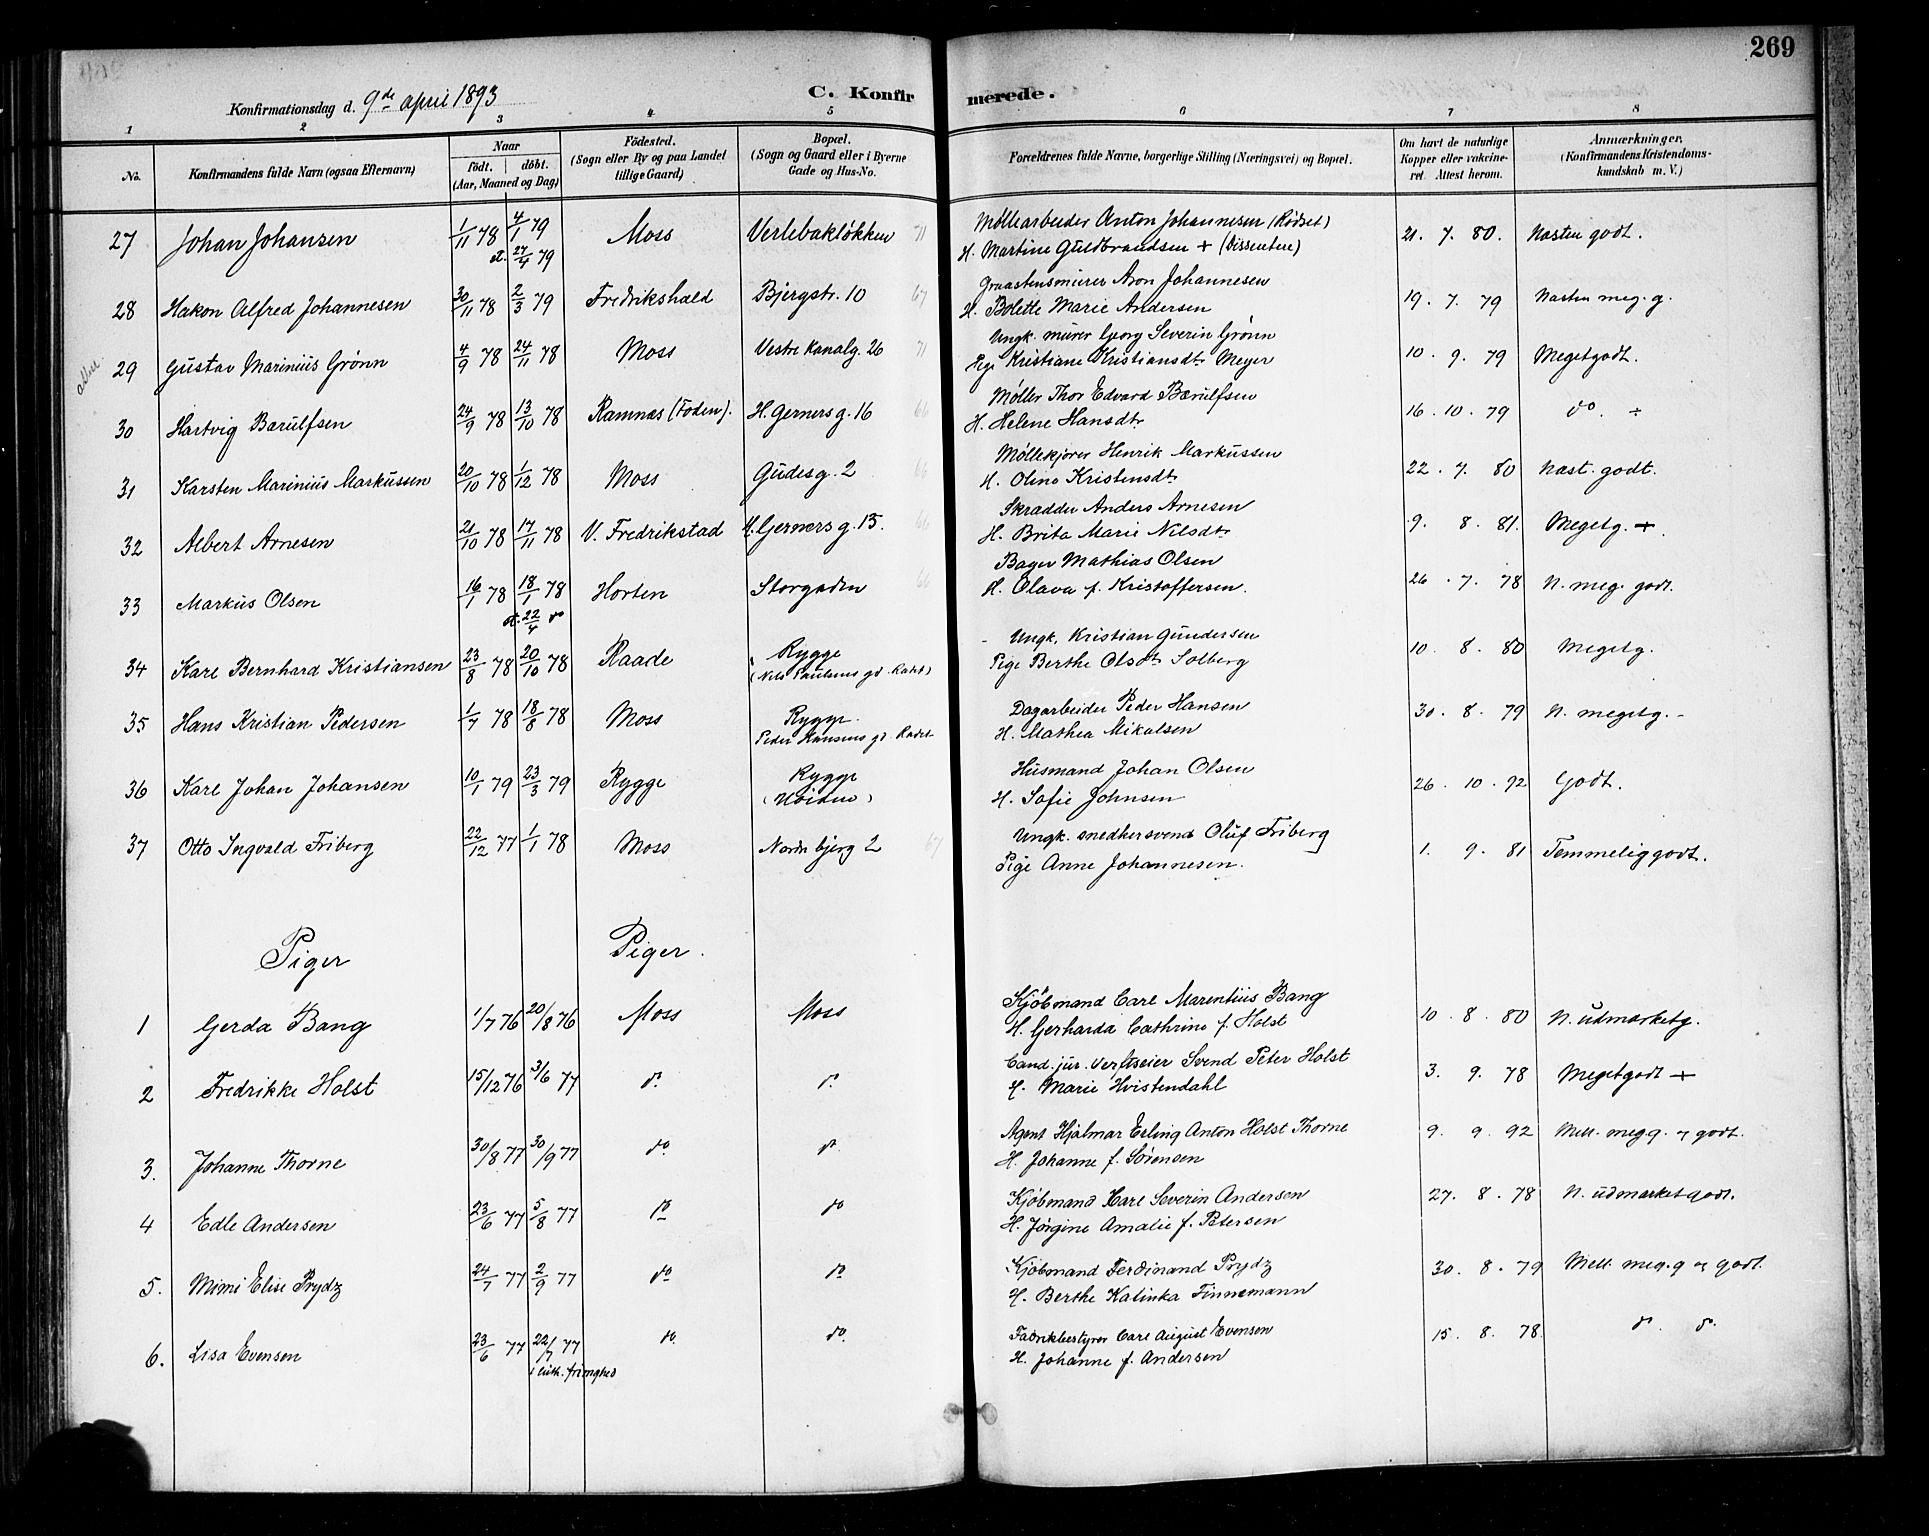 269
Konfirmationsdag d. 9de april 1893
C. Konfirmerede.
1 2 3 4 5 6 7 8
No. Konfirmandens fulde Navn (ogsaa Efternavn) Naar født. døbt. (Aar, Maaned og Dag) Fødested. (Sogn eller By og paa Landet tillige Gaard) Bopæl. (Sogn og Gaard eller i Byerne Gade og Hus-No. Forældrenes fulde Navne, borgerlige Stilling (Næringsvei) og Bopæl. Om havt de naturlige Kopper eller vakcineret. Attest herom. Anmærkninger. (Konfirmandens Kristendomskundskab m. V.)
27 Johan Johansen 1/11 78 4/1 79 st. 27/4 79 Moss Verlebakløkken 71 Møllearbeider Anton Johannesen (Rødset)
H. Martine Guldbrandsen + (Dissentere) 21. 7. 80. Næsten godt.
28 Hakon Alfred Johannesen 30/11 78 2/3 79 Fredrikshald Bjergstr. 10 67 Graastensmurer Aron Johannesen
H. Bolette Marie Andersen 19. 7. 79 Næsten meg. g.
29 Gustav Marinius Grønn 4/9 78 24/11 78 Moss Vestre Kanalg. 26 71 Ungk. murer Georg Severin Grønn
Pige Kristiane Kristiansdtr Meyer 10. 9. 79 Megetgodt.
30 Hartvig Bærulfsen 24/9 78 13/10 78 Ramnæs (Foden). H. Gerners g. 16 66 Møller Thor Edvard Bærulfsen
H. Helene Hansdtr 16. 10. 79 do. ÷
31 Karsten Marinius Markussen 20/10 78 1/12 78 Moss Gudesg. 2 66 Møllekjører Henrik Markussen
H. Oline Kristensdtr 22. 7. 80 Næst. godt.
32 Albert Arnesen 21/10 78 17/11 78 V. Fredrikstad H. Gerners g. 15. 66 Skrædder Anders Arnesen
H. Brita Marie Nilsdtr 9. 8. 81. Megetg. +.
33 Markus Olsen 16/1 78 18/1 78 st. 22/4 do Horten Storgaden 66 Bager Mathias Olsen
H. Olava f. Kristoffersen. 26. 7. 78 N. meg. godt.
34 Karl Bernhard Kristiansen 23/8 78 20/10 78 Raade Rygge
(Nils Paulsens gd. Radet) Ungk. Kristian Gundersen
Pige Berthe Olsdtr Solberg 10. 8. 80 Megetg.
35 Hans Kristian Pedersen 1/7 78 18/8 78 Moss Rygge.
Peder Hansens gd. Radet Dagarbeider Peder Hansen
H. Mathea Mikalsen 30. 8. 79 N. megetg. -
36 Karl Johan Johansen 10/1 79 23/3 79 Rygge Rygge
(Høiden) Husmand Johan Olsen
H. Sofie Johnsen 26. 10. 92 Godt.
37 Otto Ingvald Friberg 22/12 77 1/1 78 Moss Nordre bjerg 2 67 Ungk. snedkersvend Oluf Friberg
Pige Anne Johannesen. 1. 9. 81 Temmelig godt.
Piger Piger.
1 Gerda Bang 1/7 76 20/8 76 Moss Moss Kjøbmand Carl Marentius Bang
H. Gerharda Cathrine f. Holst 10. 8. 80 N. udmærketg.
2 Fredrikke Holst 15/12 76 3/6 77 do. do. Cand. jur. Verftseier Svend Peter Holst
H. Marie Hvistendahl 3. 9. 78 Megetgodt +
3. Johanne Thorne 30/8 77 30/9 77 do. do. Agent Hjalmar Erling Anton Holst Thorne
H. Johanne f. Sørensen 9. 9. 92 Mell. meg g. og godt.
4 Edle Andersen 23/6 77 5/8 77 do do Kjøbmand Karl Severin Andersen
H. Jørgine Amalie f. Petersen 27. 8. 78 N. udmærketgodt.
5. Mimi Elise Prydz 24/7 77 2/9 77 do do Kjøbmand Ferdinand Prydz
H. Berthe Katinka Finnemann 30. 8. 79 Mell. meg. g og godt.
6. Lisa Evensen 23/6 77 22/7 77 i luth. frimghed do do. Fabrikbestyrer Carl August Evensen
H. Johanne f. Andersen 15. 8. 78. do. do.